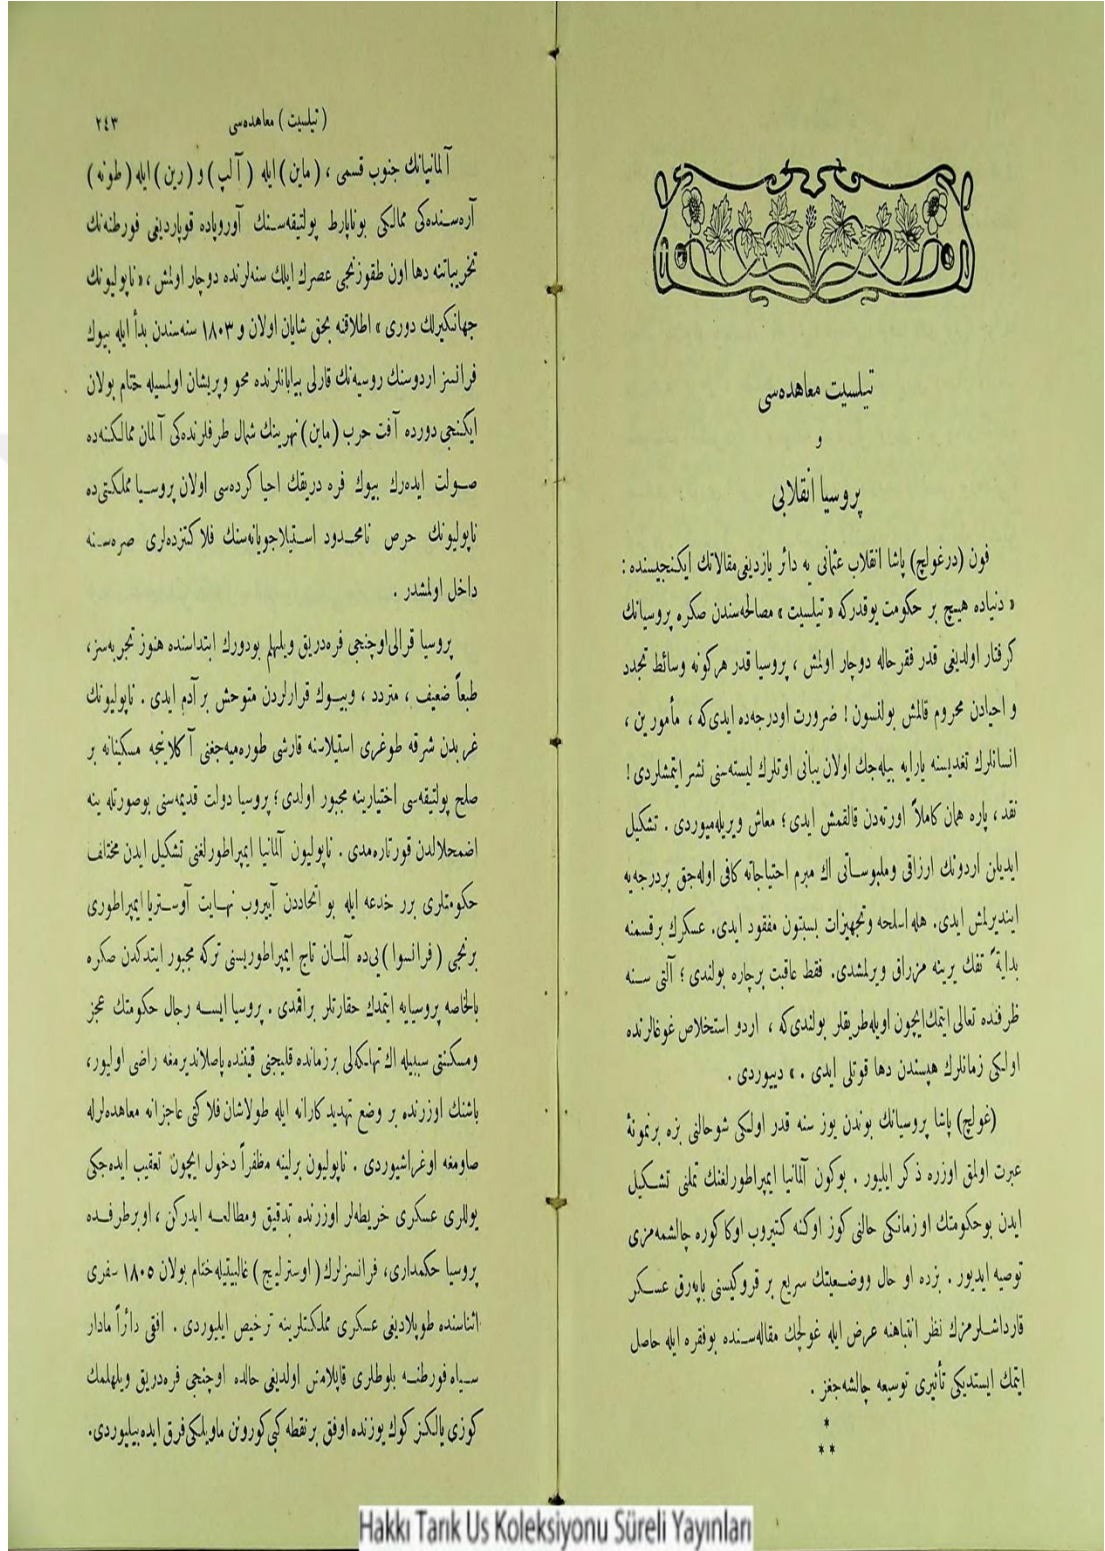 تیلسیت معاهده‌سی
و
پروسیا انقلابی
فون (درغولچ) پاشا انقلاب عثمانی یه دائر یازدیغی مقالاتك ایکنجیسنده :
« دنیاده هیچ بر حکومت یوقدرکه « تیلسیت » مصالحه‌سندن صکره پروسیانك
کرفتار اولدیغی قدر فقر حاله دوچار اولمش ، پروسیا قدر هرکونه وسائط تجدد
و احیادن محروم قالمش بولنسون ! ضرورت اودرجه‌ده ایدی‌که ، مأمورین ،
انسانلرك تغدیسنه یارایه بیله‌جك اولان یبانی اوتلرك لیسته‌سنی نشر ایتمشلردی !
نقد ، پاره همان کاملاً اورته‌دن قالقمش ایدی ؛ معاش ویریله‌میوردی . تشکیل
ایدیلن اردونك ارزاقی وملبوساتی اك مبرم احتیاجاته کافی اوله‌جق بردرجه‌یه
ایندیرلمش ایدی. هله اسلحه وتجهیزات بسبتون مفقود ایدی. عسکرك برقسمنه
بدایةً تفك یرینه مزراق ویرلمشدی. فقط عاقبت برچاره بولندی ؛ آلتی سنه
ظرفنده تعالی ایتمك‌ایچون اویله‌طریقلر بولندی‌که ، اردو استخلاص غوغالرنده
اولکی زمانلرك هپسندن دها قوتلی ایدی . » دیبوردی .
(غولچ) پاشا پروسیانك بوندن یوز سنه قدر اولکی شوحالنی بزه برنمونهٔ
عبرت اولمق اوزره ذکر ایلیور . بوکون آلمانیا ایمپراطورلغنك تملنی تشکیل
ایدن بوحکومتك او زمانکی حالنی کوز اوکنه کتیروب اوکا کوره چالشمه‌مزی
توصیه ایدیور . بزده او حال ووضعیتك سریع بر قروکیسنی یاپه‌رق عسکر
قارداشلرمزك نظر انتباهنه عرض ایله غولچك مقاله‌سنده بوفقره ایله حاصل
ایتمك ایستدیکی تأثیری توسیعه چالشه‌جغز .
*
* *
( تیلسیت ) معاهده‌سی
٢٤٣
آلمانیانك جنوب قسمی ، ( ماین ) ایله ( آلپ ) و ( رین ) ایله ( طونه )
آره‌سنده‌کی ممالکی بوناپارط پولتیقه‌سنك آوروپاده قوپاردیغی فورطنه‌نك
تخریباتنه دها اون طقوزنجی عصرك ایلك سنه‌لرنده دوچار اولمش ، « ناپولیونك
جهانکیرلك دوری » اطلاقنه بحق شایان اولان و ١٨٠٣ سنه‌سندن بدأ ایله بیوك
فرانسز اردوسنك روسیه‌نك قارلی بیابانلرنده محو وپریشان اولمسیله ختام بولان
ایکنجی دورده آفت حرب (ماین) نهرینك شمال طرفلرنده‌کی آلمان ممالکنه‌ده
صولت ایده‌رك بیوك فره دریقك احیا کرده‌سی اولان پروسیا مملکتی‌ده
ناپولیونك حرص نامحدود استیلاجویانه‌سنك فلاکتزده‌لری صره‌سنه
داخل اولمشدر .
پروسیا قرالی اوچنجی فره‌دریق ویلهلم بودورك ابتداسنده هنوز تجربه‌سز ،
طبعاً ضعیف ، متردد ، وبیوك قرارلردن متوحش برآدم ایدی . ناپولیونك
غربدن شرقه طوغری استیلاسنه قارشی طوره‌میه‌جغنی آکلاینجه مسکینانه بر
صلح پولتیقه‌سی اختیارینه مجبور اولدی ؛ پروسیا دولت قدیمه‌سنی بوصورتله ینه
اضمحلالدن قورتاره‌مدی . ناپولیون آلمانیا ایمپراطورلغنی تشکیل ایدن مختلف
حکومتلری برر خدعه ایله بو اتحاددن آییروب نهایت آوستریا ایمپراطوری
برنجی ( فرانسوا ) یی‌ده آلمان تاج ایمپراطوریسنی ترکه مجبور ایتدکدن صکره
بالخاصه پروسیایه ایتمدك حقارتلر براقمدی . پروسیا ایسه رجال حکومتك عجز
ومسکنتی سببیله اك تهلکه‌لی برزمانده قلیجنی قیننده پاصلاندیرمغه راضی اولیور،
باشنك اوزرنده بر وضع تهدید کارانه ایله طولاشان فلاکتی عاجزانه معاهده‌لرله
صاومغه اوغراشیوردی . ناپولیون برلینه مظفراً دخول ایچون تعقیب ایده‌جکی
یوللری عسکری خریطه‌لر اوزرنده تدقیق ومطالعه ایدرکن ، اوبرطرفده
پروسیا حکمداری، فرانسزلرك ( اوسترلیچ ) غالبیتیله ختام بولان ١٨٠٥ سفری
اثناسنده طوپلادیغی عسکری مملکتلرینه ترخیص ایلیوردی . افقی دائراً مادار
سیاه فورطنه بلوطلری قاپلامش اولدیغی حالده اوچنجی فره‌دریق ویلهلمك
کوزی یالکز کوك یوزنده اوفق برنقطه کبی کورونن ماویلکی فرق ایده‌بیلیوردی.
Hakkı Tarık Us Koleksiyonu Süreli Yayınları